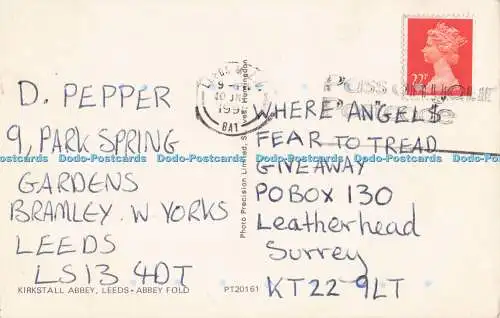 D. PEPPER
9, PARK SPRING
GARDENS
BRAMLEY. W YORKS
LEEDS
LS13 4DT
KIRKSTALL ABBEY, LEEDS - ABBEY FOLD
PT20161
Photo Precision Limited, St. Ives, Huntingdon
LEEDS
9
BAT
22P
WHERE ANGELS
FEAR TO TREAD
GIVEAWAY
PO BOX 130
Leatherhead
Surrey
KT22 9LT
Dodo-Postcards Dodo-Postcards Dodo-Postcards Dodo-Postcards Dodo-Postcards